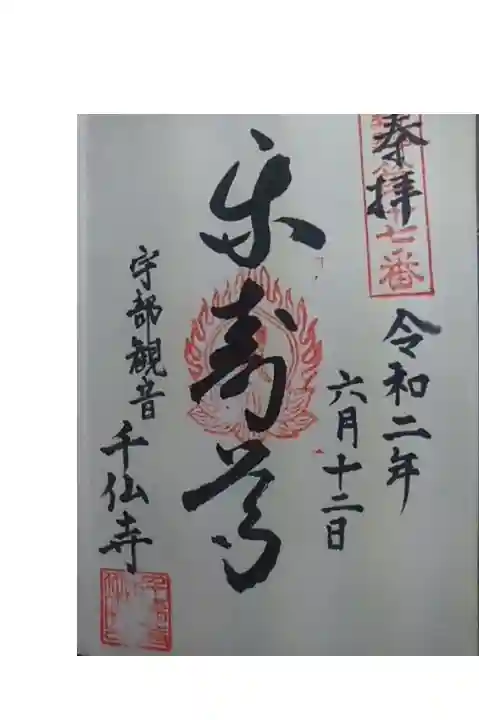 奉拝
十七番
令和二年
六月十二日
楽寿尊
宇部観音
千仏寺